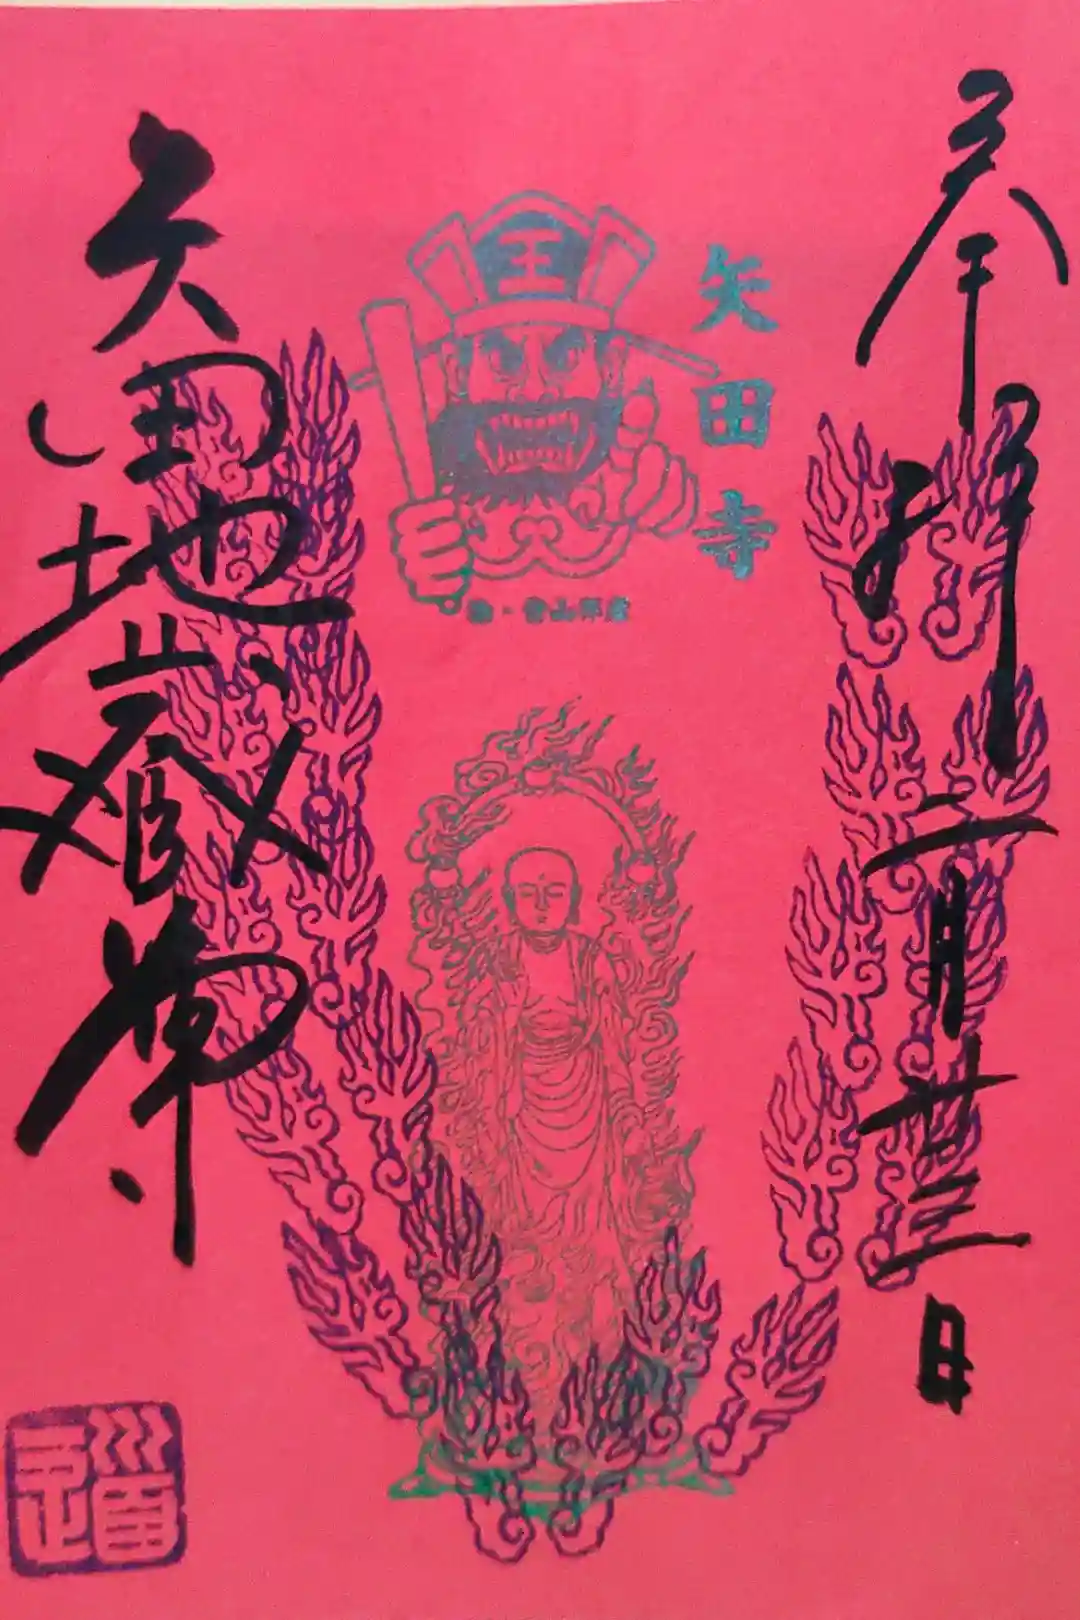 奉拝 一月廿三日
王
矢田寺
矢田地蔵尊